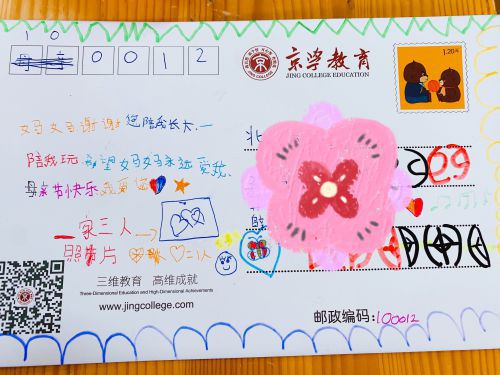 1 0
0 0 1 2
京学教育
JING COLLEGE EDUCATION
1.20元
妈妈谢谢您陪我长大.一
陪我玩.希望妈妈永远爱我.
母亲节快乐我爱您
一家三人
照片
北
三维教育 高维成就
Three-Dimensional Education and High-Dimensional Achievements
www.jingcollege.com
邮政编码:100012